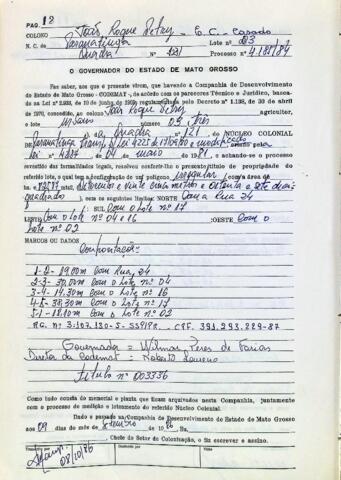 PAG. 12
COLONO João Roque Petry - E.C. - Casado
N. C. de Paranatinga Lote nº 03
Quadra Nº 121 Processo 4.181/84
O GOVERNADOR DO ESTADO DE MATO GROSSO
Faz saber, aos que a presente virem, que havendo a Companhia de Desenvolvimento
do Estado de Mato Grosso - CODEMAT -, de acordo com os pareceres Técnico e Jurídico, basea-
da na Lei nº 2.933, de 10 de junho de 1959, regulamentada pelo Decreto nº 1.138, de 30 de abril
de 1970, concedido ao colono João Roque Petry, agricultor,
o lote urbano nº 03 três
da Quadra nº 121 do NÚCLEO COLONIAL
de Paranatinga
lei 4087 de 04 de maio de 1971, e achando-se o processo
revestido das formalidades legais, resolveu conferir-lhe o presente título de propriedade do
referido lote, o qual tem a configuração de um polígono irregular com a área de
quadrados), com os seguintes limites: NORTE Com a Rua 24
SUL Com o lote nº 17
LESTE Com o Lote nº 04 e 16 :OESTE Com o
Lote nº 02
MARCOS OU DADOS
Confrontações:
1-2- 19,00m Com Rua, 24
2-3- 30,00m Com o Lote nº 04
3-4- 14,30m Com o Lote nº 16
4-5- 38,30m Com o Lote nº 17
5-1- 18,10m Com o Lote nº 02
RG. Nº 3.107.130-5-SSP/PR. CPF. 391.293.229-87
Governador = Wilmar Peres de Farias
Diretor da Codemat = Roberto Loureiro
Título nº 003336
Como tudo consta do memorial e planta que ficam arquivados nesta Companhia, juntamente
com o processo de medição e loteamento do referido Núcleo Colonial.
Dado e passado na Companhia de Desenvolvimento do Estado de Mato Grosso
aos 09 dias do mês de Setembro de 1986. Eu,
Chefe do Setor de Colonização, o fiz escrever e assino.
08/10/86